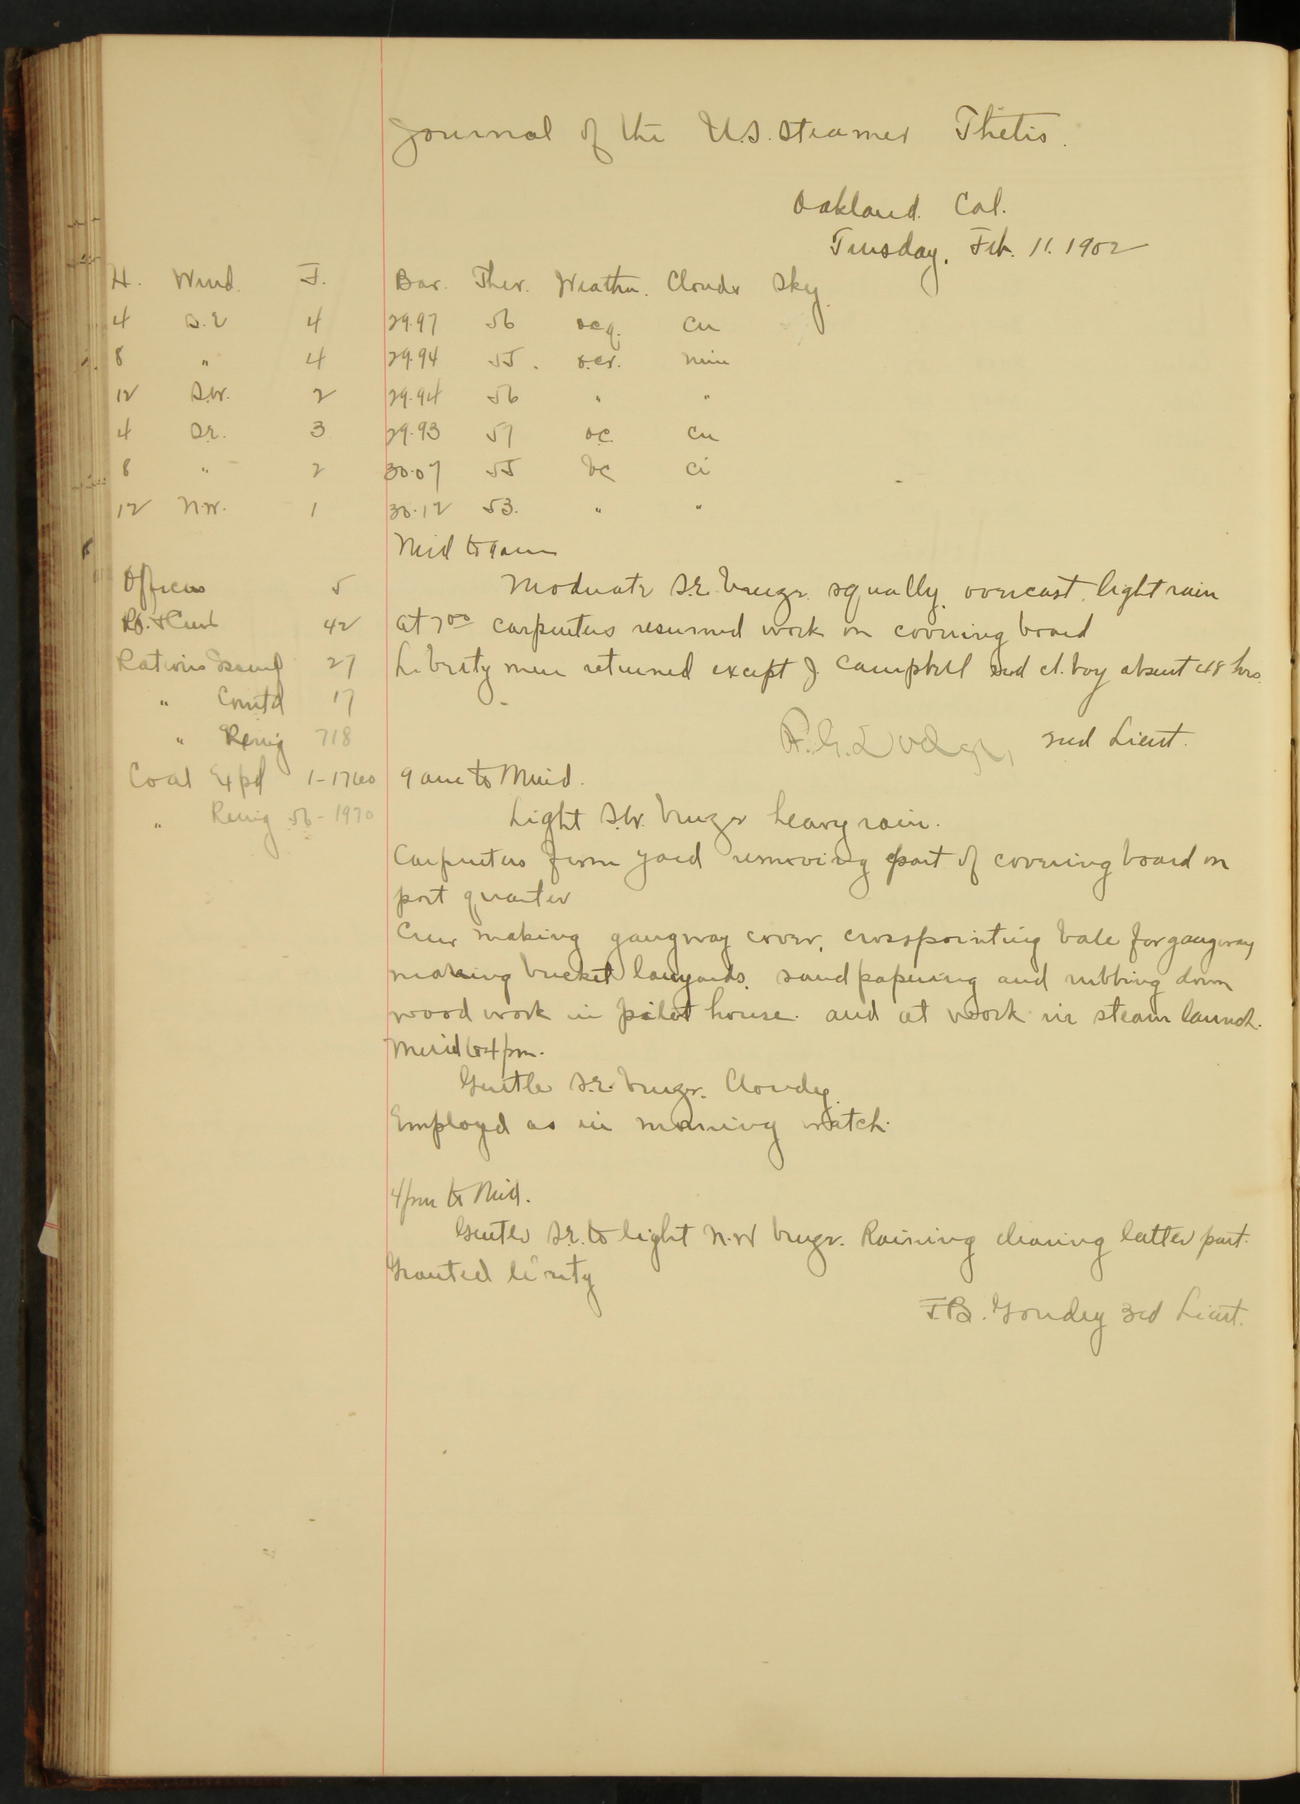 Journal of the U.S. Steamer Thetis.
Oakland. Cal.
Tuesday, Feb. 11. 1902
H. Wind. F. Bar. Ther. Weather. Clouds Sky.
4 S.E 4 29.97 56 ocq. cu
8 " 4 29.94 55. ocr. nim
12 S.W. 2 29.94 56 " "
4 S.E. 3 29.93 57 oc. cu
8 " 2 30.07 55 bc ci
12 N.W. 1 30.12 53. " "
Mid to 9 am
Officers 5 Moderate S.E. breeze squally, overcast, light rain
P.O. & Crew 42 At 7 00 carpenters resumed work on covering board
Rations Issued 27 Liberty men returned except J. Campbell 2nd cl. boy absent 48 hrs.
" Comtd 17
" Remg 718 2nd Lieut.
Coal Expd 1-1760 9 am to Merid.
" Remg 56-1970 Light S.W. breeze heavy rain.
Carpenters from yard removing part of covering board on
port quarter
Crew making gangway cover, crosspointing bale for gangway
making bucket lanyards, sandpapering and rubbing down
wood work in pilot house. and at work in steam launch.
Merid to 4 pm.
Gentle S.E. breeze. Cloudy.
Employed as in morning watch.
4 pm to Mid.
Gentle S.E. to light N.W breeze. Raining clearing latter part.
Granted liberty
3rd Lieut.